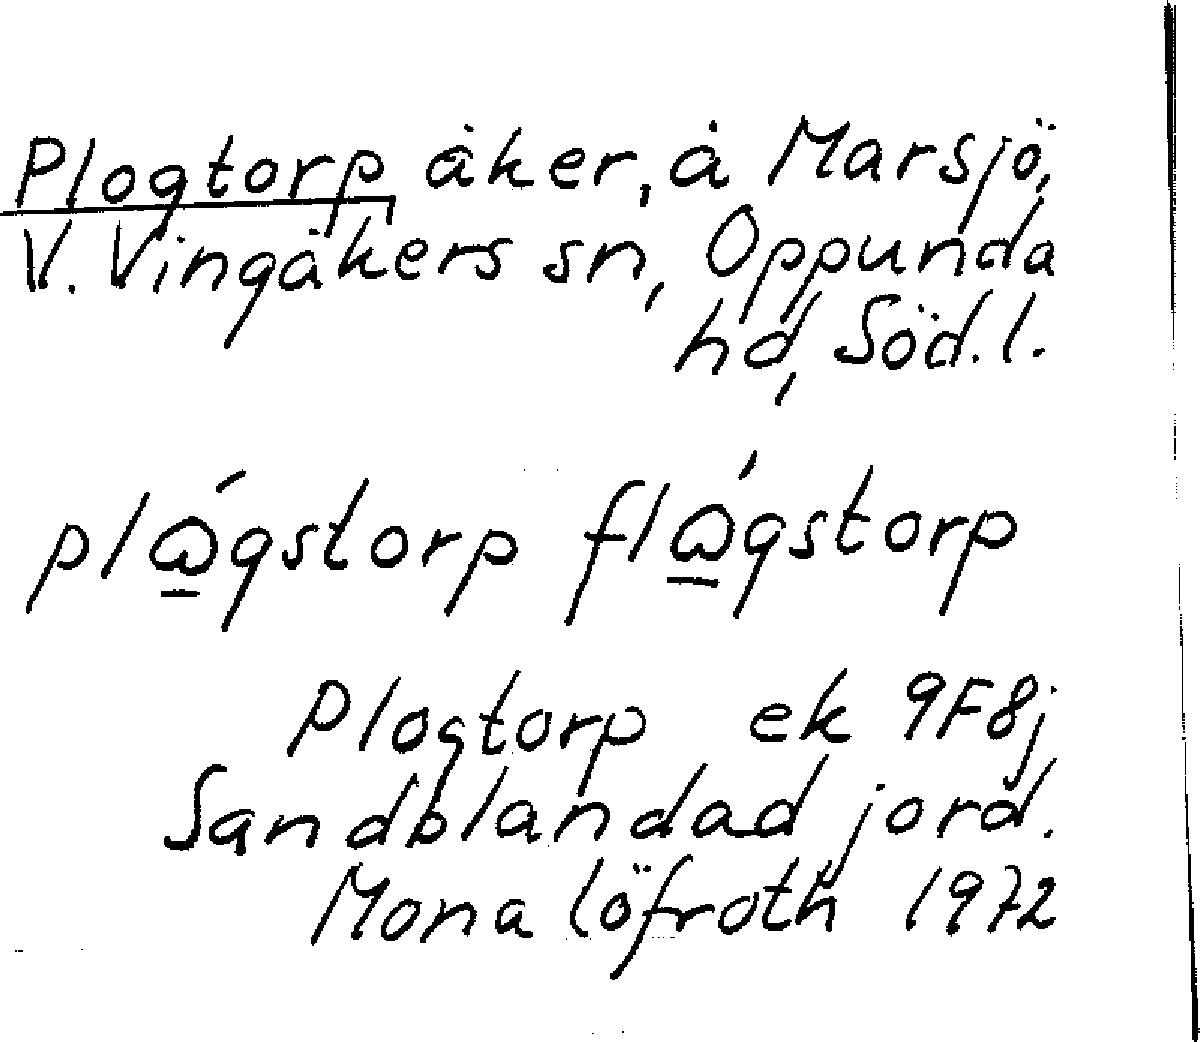 Plogtorp, åker, å Marsjö,
V. Vingåkers sn, Oppunda
hd, Söd.l.
plώ̲gstorp flώ̲gstorp
Plogtorp ek 9F8j
Sandblandad jord.
Mona Löfroth 1972